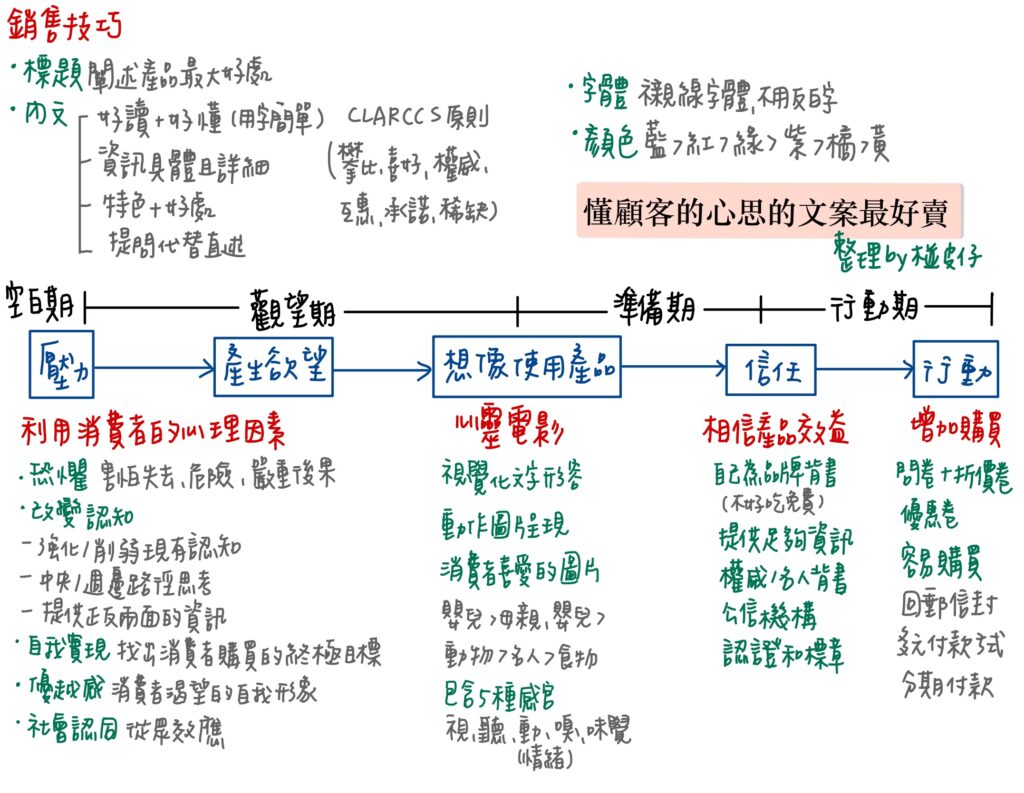 銷售技巧
・標題 闡述產品最大好處
・內文
好讀+好懂(用字簡單)
資訊具體且詳細
特色+好處
提問代替直述
CLARCCS原則
(攀比、喜好、權威、
互惠、承諾、稀缺)
・字體 襯線字體,不用反白字
・顏色 藍>紅>綠>紫>橘>黃
懂顧客的心思的文案最好賣
整理by椪皮仔
空白期 觀望期 準備期 行動期
壓力 產生欲望 想像使用產品 信任 行動
利用消費者的心理因素
・恐懼 害怕失去、危險、嚴重後果
・改變認知
-強化/削弱現有認知
-中央/週邊路徑思考
-提供正反兩面的資訊
・自我實現 找出消費者購買的終極目標
・優越感 消費者渴望的自我形象
・社會認同 從眾效應
心靈電影
視覺化文字形容
動作圖片呈現
消費者喜愛的圖片
嬰兒>母親、嬰兒>
動物>名人>食物
包含5種感官
視、聽、動、嗅、味覺
(情緒)
相信產品效益
自己為品牌背書
(不好吃免費)
提供足夠資訊
權威/名人背書
公信機構
認證和標章
增加購買
問卷+折價卷
優惠卷
容易購買
回郵信封
多元付款方式
分期付款